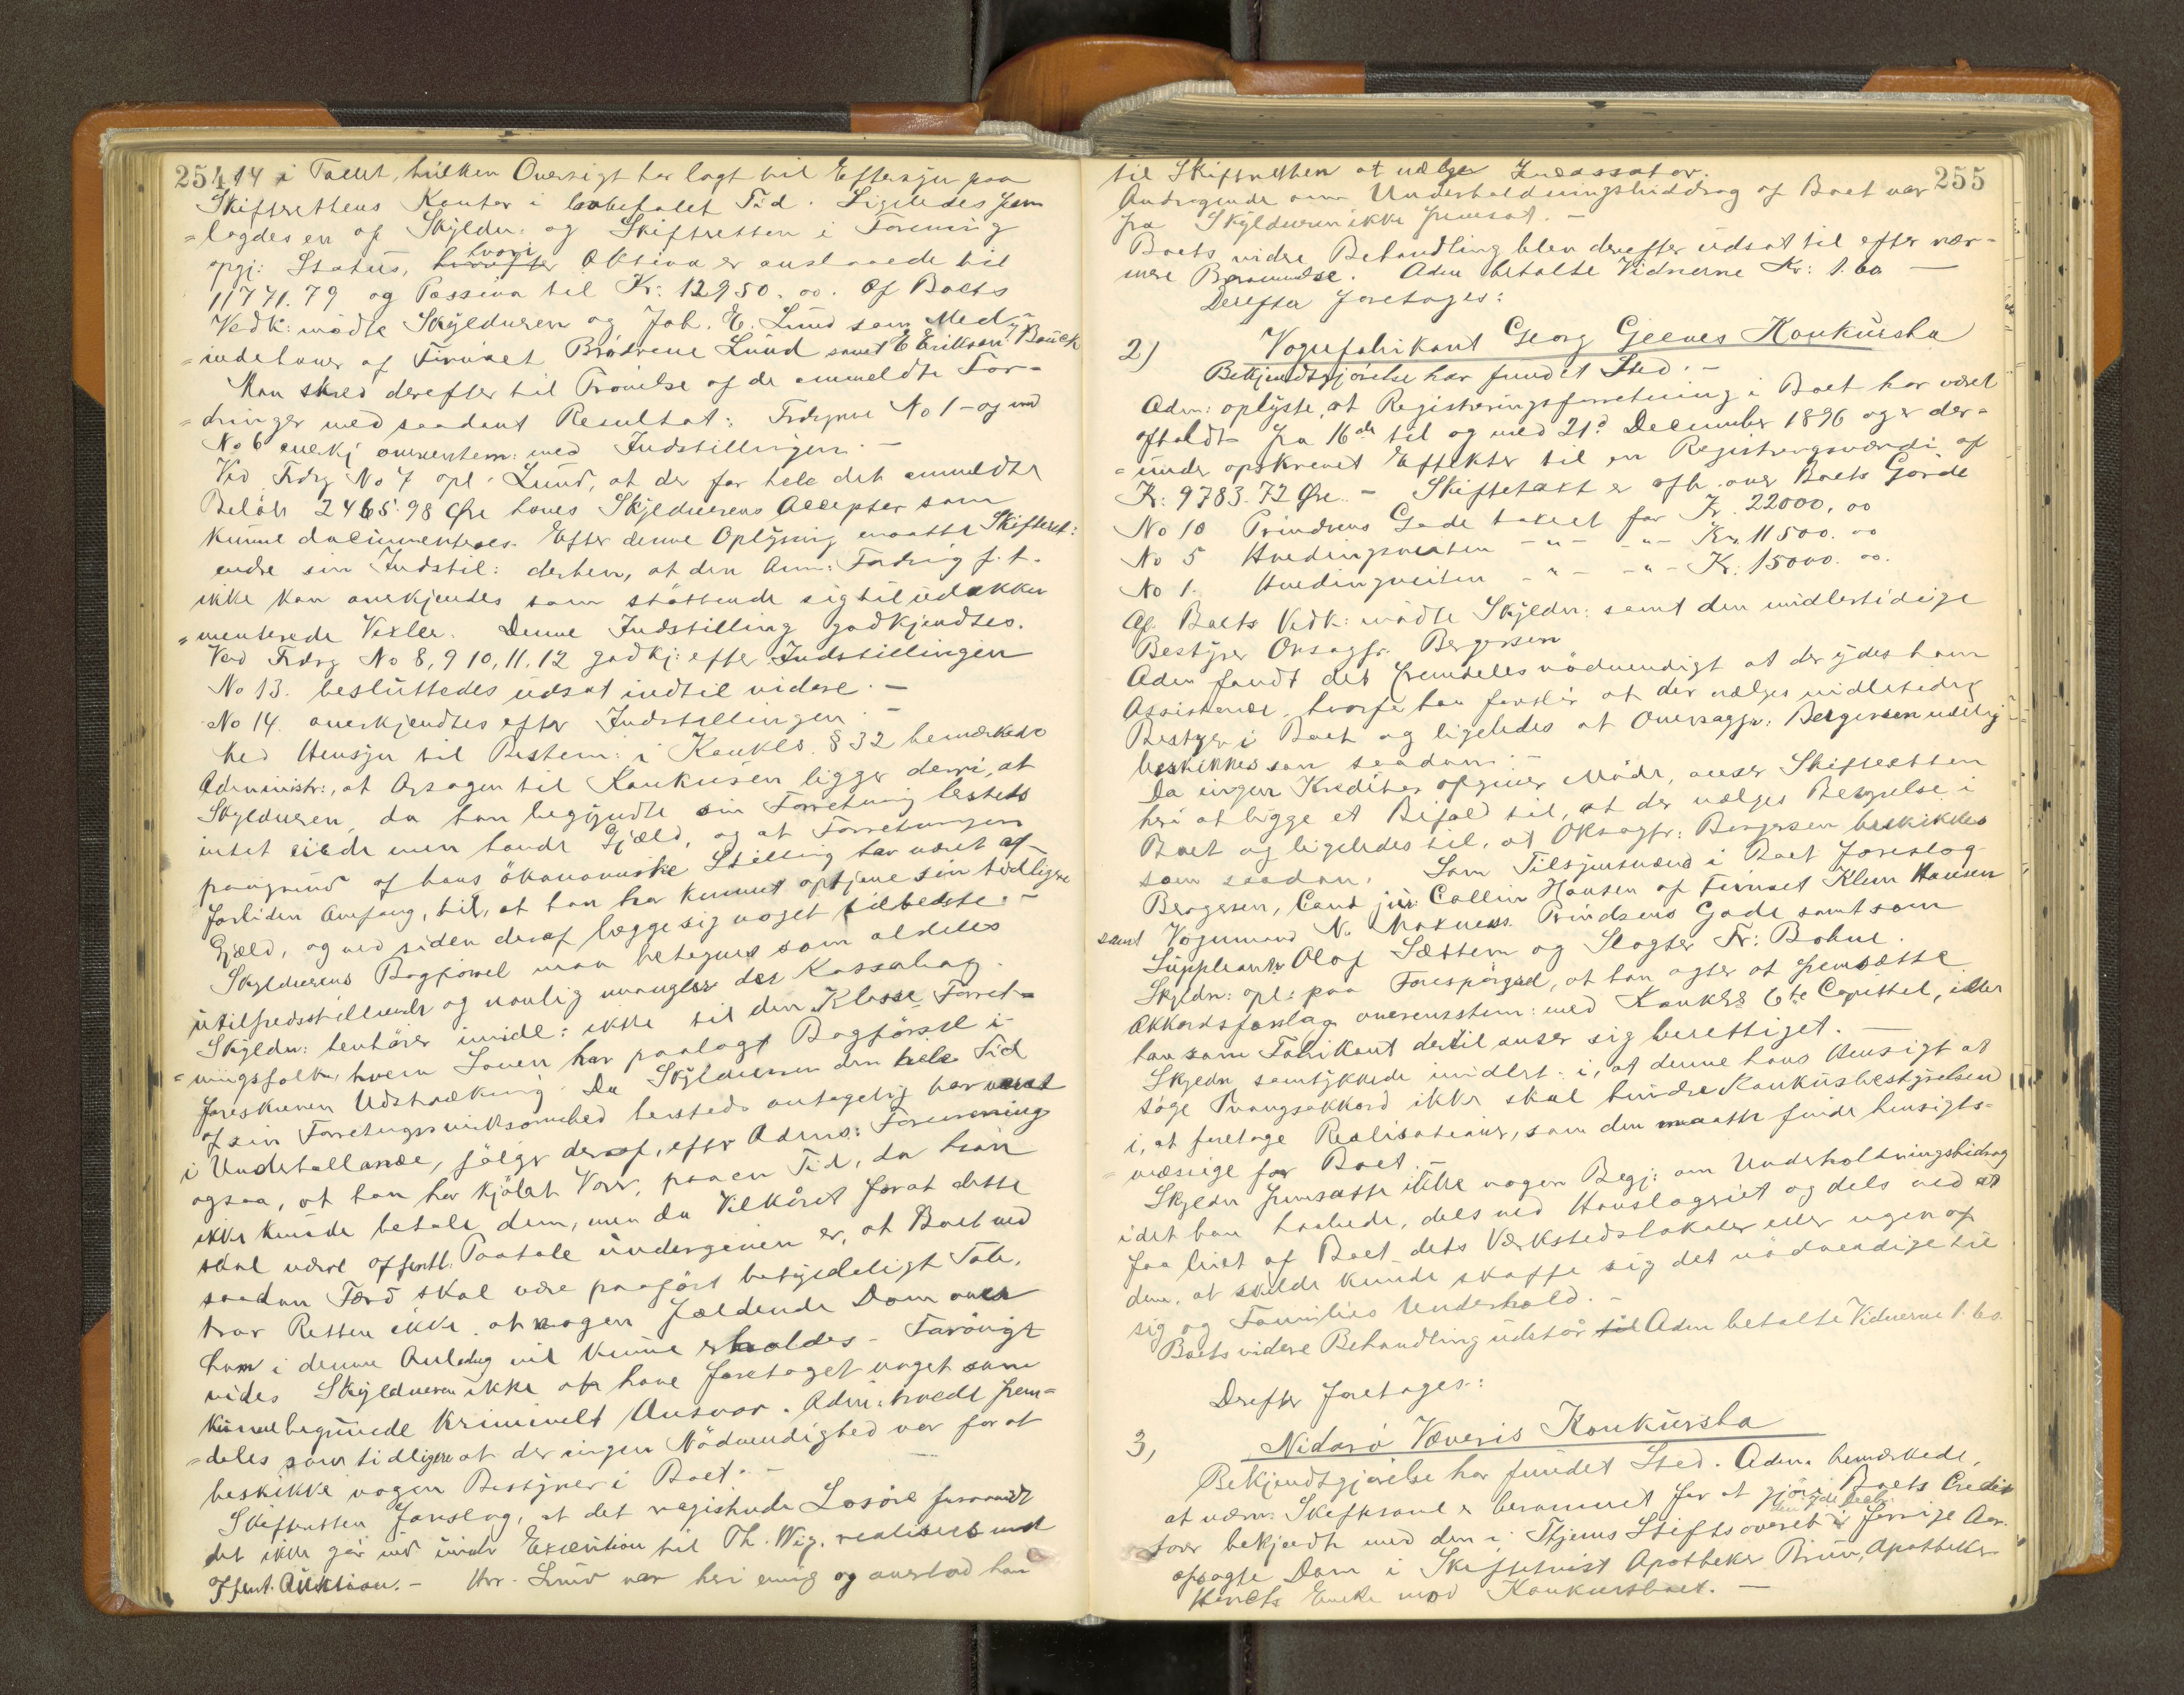 254
14 i Tallet, hvilken Oversigt har lagt til Eftersyn paa
Skifterettens Kontor i lovbefalet Tid. Ligeledes frem
=lagdes en af Skyldn: og Skifteretten i Forening
opgj: Status, hvori Aktiva er anslaaede til
11771.79 og Passiva til Kr: 12950.00. Af Boets
Vedk: mødte Skyldneren og Joh. E. Lund som Med-
=indehaver af Firmaet Brødrene Lund samt E Erikson Bauck
Man skred derefter til Prøvelse af de anmeldte For-
=dringer med saadant Resultat: Frdrgrne No 1- og med
No 6 anerkj overenstem: med Indstillingen. -
Ved Frdrg No 7 opl. Lund, at der for hele det anmeldte
Beløb 2465.98 Øre haves Skyldnerens Accepter som
kunne documenteres. Efter denne Oplysning maatte Skifteret:
endre sin Indstil: derhen, at den Anm: Fordring f. t.
ikke kan anerkjendes som støttende sig til udokku
=menterede Vexler. Denne Indstilling godkjendtes.
Ved Frdrg No 8, 9 10, 11, 12 godkj: efter Indstillingen
No 13. besluttedes udsat indtil videre. -
No 14. anerkjendtes efter Indstillingen. -
Med Hensyn til Bestem: i Konkl. § 32 bemærkede
Administr:, at Aarsagen til Konkursen ligger deri, at
Skyldneren, da han begyndte sin Forretning herstets
intet eiede men havde Gjæld, og at Forretningen
paagrund af hans økonomiske Stilling har været af
forliden Omfang, til, at han har kunnet optjene sin tidligere
Gjæld, og ved siden deraf lægge sig noget tilbedste. -
Skyldnerens Bogførsel maa betegnes som aldeles
utilfredsstillende og navnlig mangler der Kassabog.
Skyldn: henhører imidl: ikke til den Klasse Forret=
=ningsfolk, hvem Loven har paalagt Bogførsel i
foreskreven Udstrækning. Da Skyldneren den hele Tid
af sin Forretningsvirksomhed hersteds antagelig har været
i Underballance, følger deraf, efter Adms: Formening
ogsaa, at han har kjøbt Varer, paa en Tid, da han
ikke kunde betale dem, men da Vilkåret for at dette
skal være offentl. Paatale undergiven er, at Boet ved
saadan Færd skal være paaført betydeligt Tab,
tror Retten ikke, at nogen fældende Dom over
ham i denne Anledng vil kunne erholdes - Forøvrigt
vides Skyldneren ikke at have foretaget noget som
kunne begrunde kriminelt Ansvar. Adm: troede frem=
=deles som tidligere at der ingen Nødvendighed var for at
beskikke nogen Bestyrer i Boet. -
Skifteretten foreslog, at det registrerede Løsøre forsaavidt
det ikke går ind under Execution til Th. Wig. realiseres ved
offent. Auktion. - Hr. Lund var heri enig og overlod han
255
til Skifteretten at vælge Incassator.
Andragende om Underholdningsbidrag af Boet var
fra Skyldneren ikke fremsat. -
Boets videre Behandling blev derefter udsat til efter nær-
mere Berammelse. Adm betalte Vidnerne Kr: 1.60 -
Derefter foretages:
2) Vognfabrikant Georg Gjeenes Konkursbo
Bekjendtgjørelse har fundet Sted. -
Adm: oplyste, at Registreringsforretning i Boet har været
afholdt fra 16de til og med 21de December 1896 og er der-
=under opskrevet Effekter til en Registrergsværdi af
Kr: 9783.72 Øre. - Skiftetaxt er afh. over Boets Gårde
No 10 Prindsens Gade taxeret for Kr. 22000,00
No 5 Hvedingsveiten -"- -"- Kr. 11500.00
No 1. Hvedingsveiten -"- -"- Kr. 15000.00.
Af Boets Vedk: mødte Skyldn: samt den midlertidige
Bestyrer Ovsagfr. Bergersen
Adm fandt det fremdeles nødvendigt at der ydes ham
Assistance, hvorfor han foreslår at der vælges midlertidig
Bestyrer i Boet og ligeledes at Oversagfr: Bergersen
beskikkes som saadan. -
Da ingen Kreditor afgiver Møde, anser Skifteretten
heri at ligge et Bifald til, at der vælges Bestyrelse i
Boet og ligeledes til, at Oksagfr: Bergersen beskikkes
som saadan. Som Tilsynsmænd i Boet foreslog
Bergersen, Cand jur: Collin Hansen af Firmaet Klem Hansen
samt Vognmand N. Moxness Prindsens Gade samt som
Suppleant Olaf Sættem og Slagter Fr: Bohne.
Skyldn: opl: paa Forespørgsel, at han agter at fremsætte
Akkordsforslag overensstem: med Konkls 6te Capittel, idet
han som Fabrikant dertil anser sig berettiget. -
Skyldn samtykkede imidlert: i, at denne hans Hensigt at
søge Tvangsakkord ikke skal hindre Konkursbestyrelsen
i, at foretage Realisationer, som den maatte finde hensigts=
=mæssige for Boet. -
Skyldn fremsatte ikke nogen Begj: om Underholdningsbidrag
idet han haabede, dels ved Huuslogiet og dels ved at
faa leiet af Boet dets Værkstedslokaler eller nogen af
dem, at skulde kunde skaffe sig det nødvendige til
sig og Families Underhold. -
Boets videre Behandling udstår Adm betalte Vidnerne 1.60.
Derefter foretages:
3, Nidarø Væveris Konkursbo
Bekjendtgjørelse har fundet Sted. Adm. bemærkede,
at nærv. Skiftesaml er berammet for at gjøre Boets Credit
torer bekjendt med den i Thjems Stiftsoveret i forrige Aar
afsagte Dom i Skiftetvist Apotheker Bruun, Apotheker
Enke mod Konkursboet. -